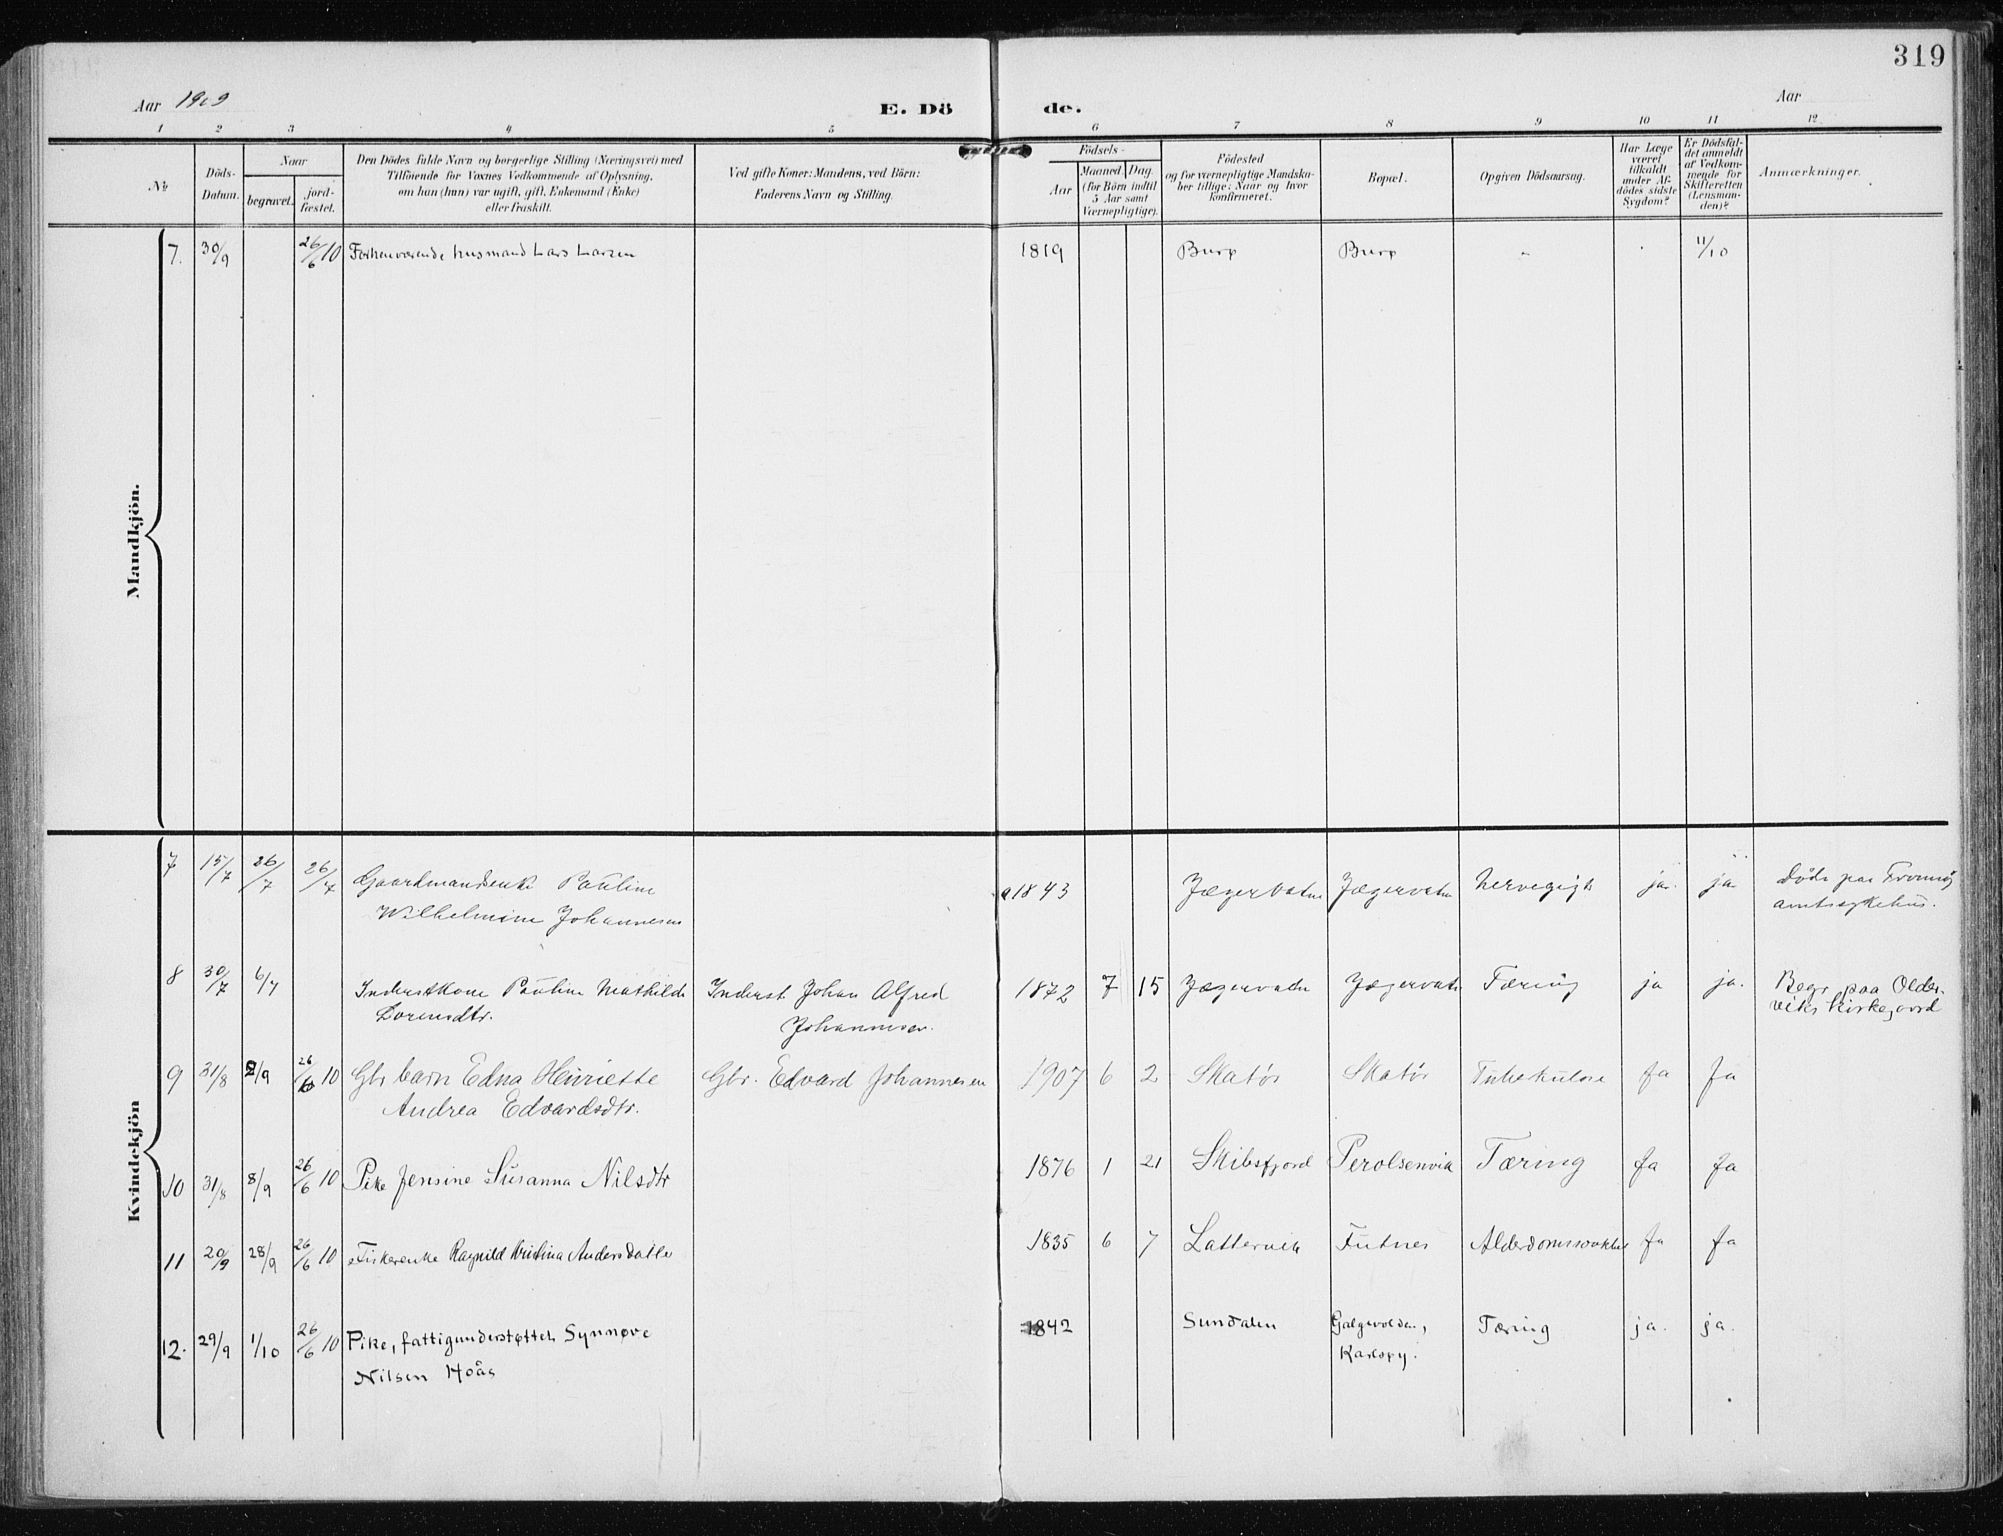 319
Aar 1909
E. Dö de.
Aar
1 2 3 4 5 6 7 8 9 10 11 12
№
Döds-
Datum.
Naar
begravet.
jord-
fæstet.
Den Dödes fulde Navn og borgerlige Stilling (Næringsvei) med
Tilföiende for Voxnes Vedkommende af Oplysning,
om han (hun) var ugift, gift, Enkemand (Enke)
eller fraskilt.
Ved gifte Koner: Mandens, ved Börn:
Faderens Navn og Stilling.
Födsels-
Aar
Maaned. Dag.
(for Börn indtil
5 Aar samt
Værnepligtige).
Födested
og for værnepligtige Mandska-
ber tillige: Naar og hvor
konfirmeret.
Bopæl.
Opgiven Dödsaarsag.
Har Læge
været
tilkaldt
under Af-
dödes sidste
Sygdom?
Er Dödsfal-
det anmeldt
af Vedkom-
mende for
Skifteretten
(Lensman-
den)?
Anmærkninger.
Mandkjön.
7. 30/9 26/6 10 Forhenværende husmand Lars Larsen 1819 Burø Burø - 11/10
Kvindekjön
7 15/7 26/7 26/7 Gaardmandsenke Pauline 1843 Jægervatn Jægervatn ja. ja Døde paa Tromsø
Wilhelmine Johannesen amtssykehus.
8 30/7 6/7 Inderstkone Pauline Mathilde Inderst Johan Alfred 1872 7 15 Jægervatn Jægervatn Tæring ja ja. Begr. paa Older-
Lorensdtr. Johannesen. viks kirkegaard
9 31/8 8/9 26/6 10 Gbr barn Edna Henriette Gbr. Edvard Johannesen 1907 6 2 Skatør Skatør Tuberkulose Ja Ja
Andrea Edvardsdtr.
10 31/8 8/9 26/6 10 Pike Jensine Susanna Nilsdtr 1876 1 21 Skibsfjord Perolsenvik Tæring Ja Ja
11 20/9 28/9 26/6 10 Fiskerenke Ragnild Kristina Andersdatte 1835 6 7 Lattervik Futnes Alderdomssvakhet Ja Ja
12. 29/9 1/10 26/6 10 Pike, fattigunderstøttet Synnøve 1842 Sundalen Galgevolden, Tæring ja. ja.
Nilsen Hoås Karlsøy.